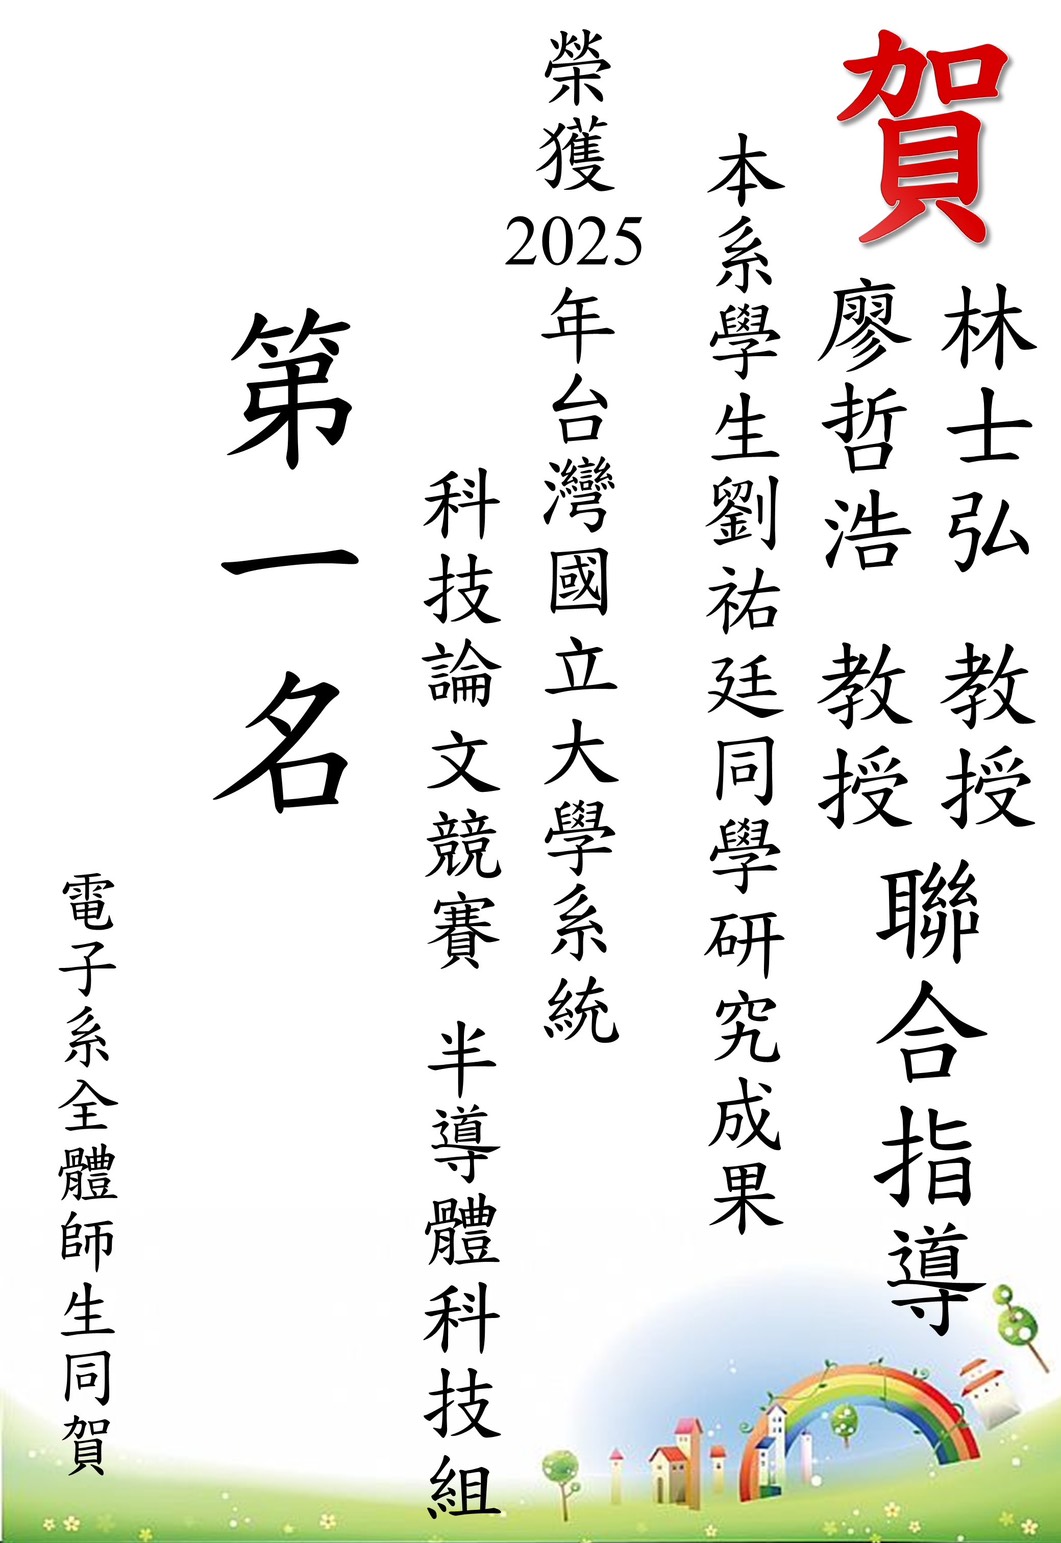 賀
林士弘 教授
廖哲浩 教授
聯合指導
本系學生劉祐廷同學研究成果
榮獲2025年台灣國立大學系統
科技論文競賽 半導體科技組
第一名
電子系全體師生同賀